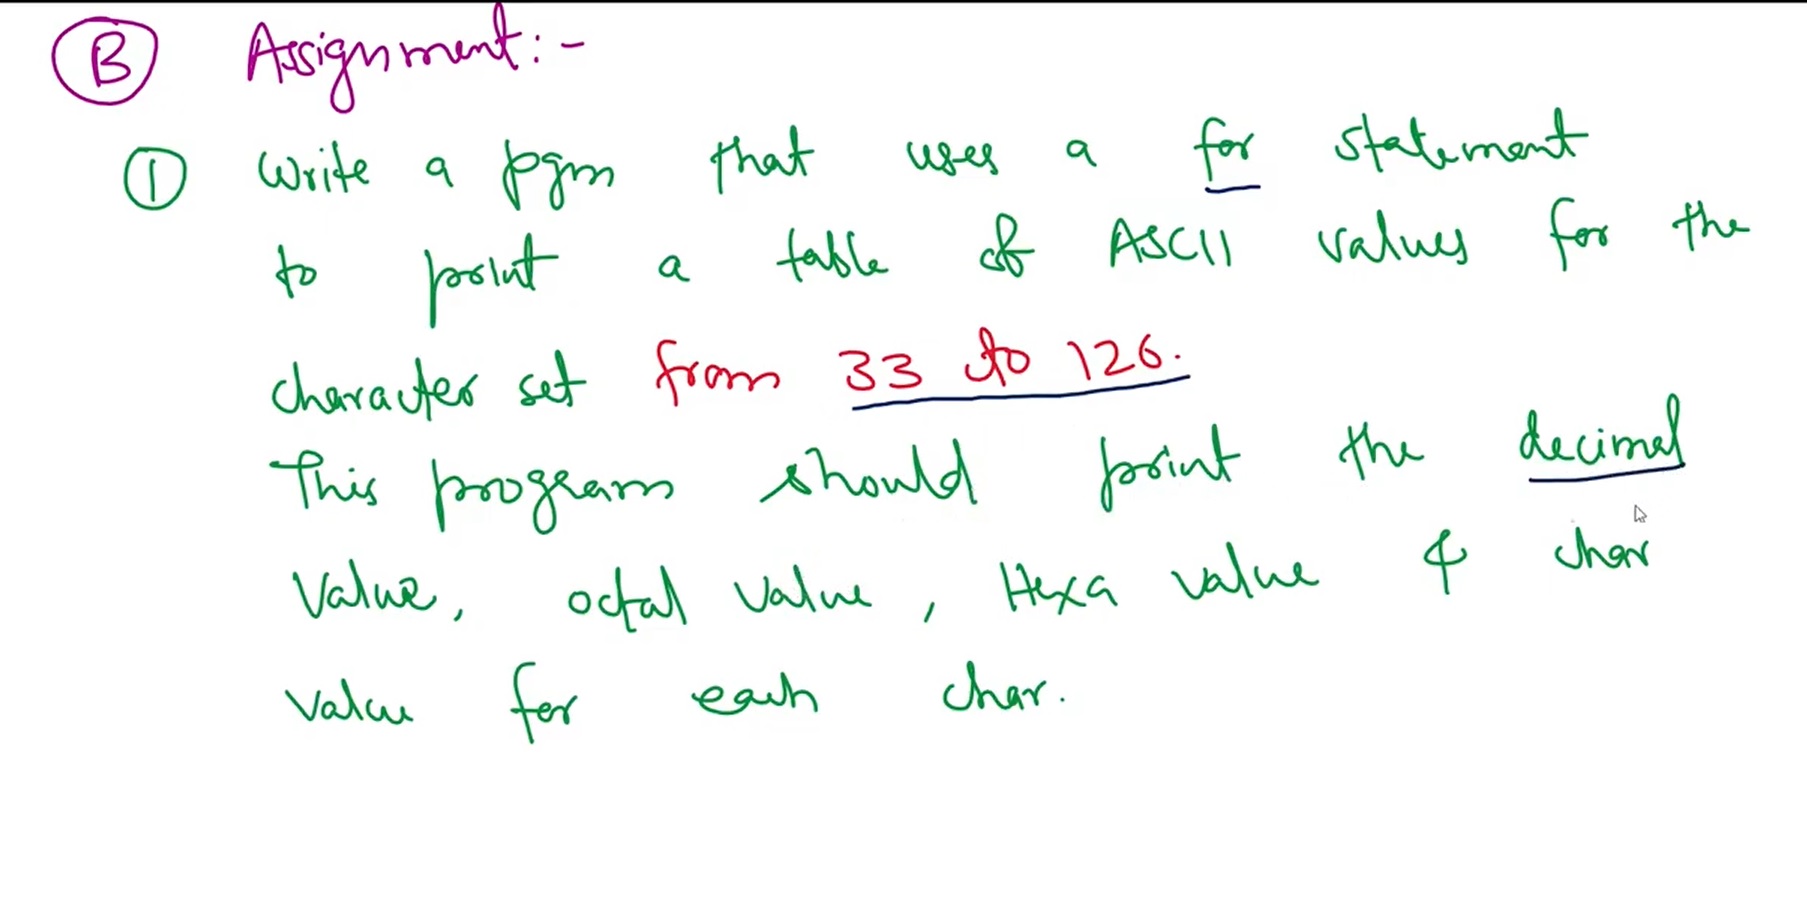 B Assignment:-
1 Write a pgm that uses a for statement
to print a table of ASCII values for the
character set from 33 to 126.
This program should print the decimal
Value, octal value, Hexa value & char
value for each char.